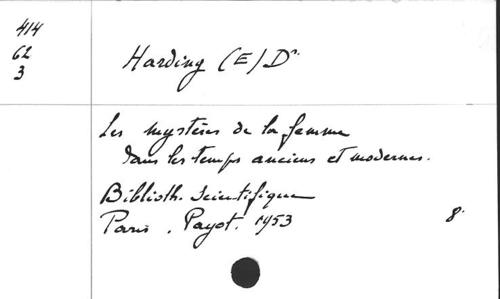 414
62
3
Harding (E) Dr.
Les mystères de la femme
dans les temps anciens et modernes.
Biblioth. Scientifique
Paris. Payot. 1953
8°